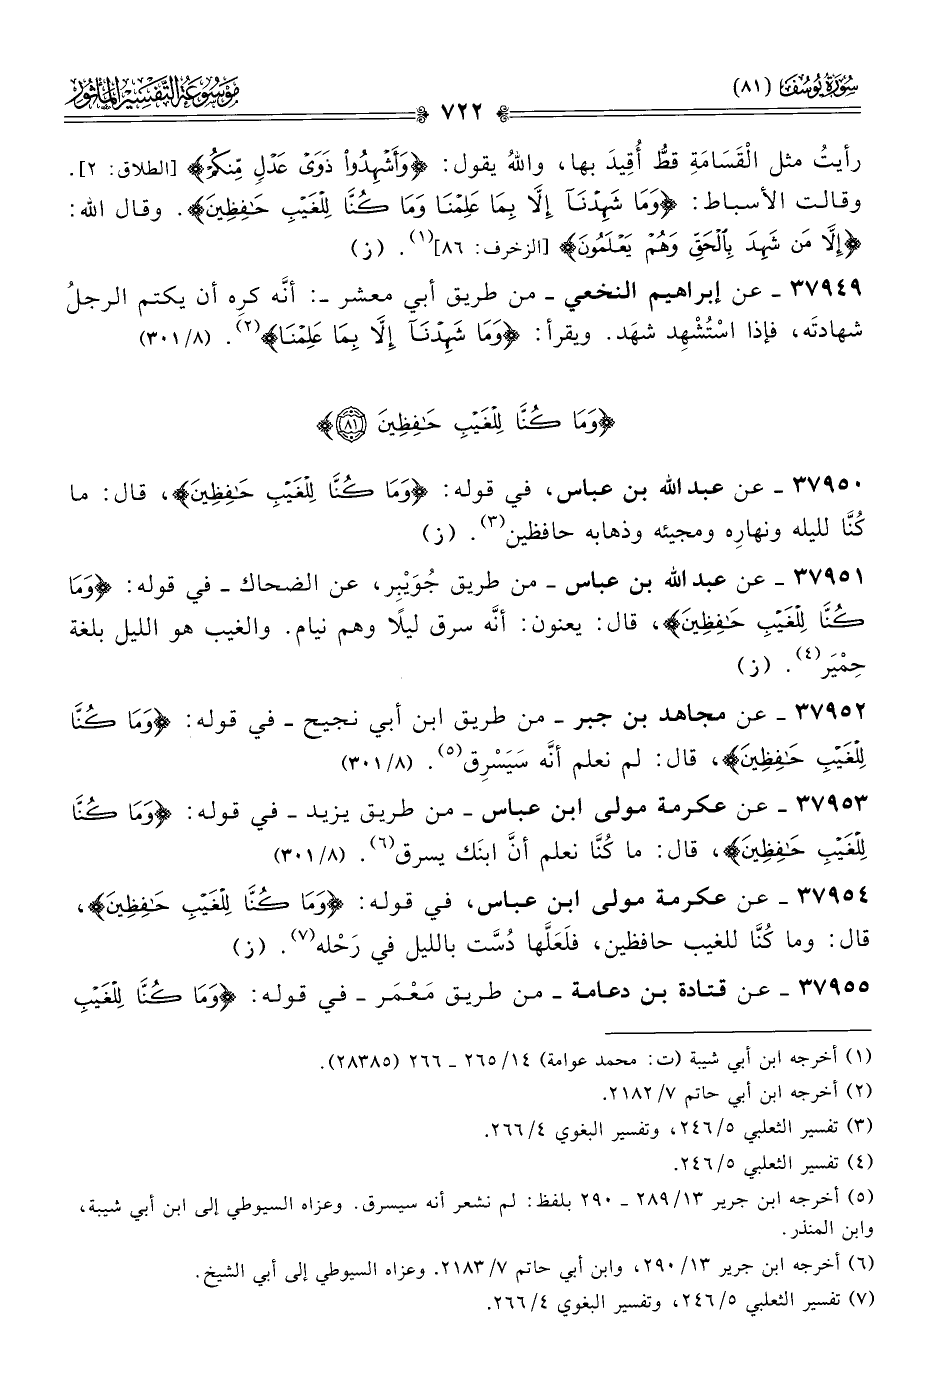 سُورَةُ يُوسُفَ (٨١)
٧٢٢
مَوْسُوعَةُ التَّفْسِيْرِ المَأْثُورِ
رأيتُ مثل الْقَسَامَةِ قطُّ أُقِيدَ بها، واللهُ يقول: ﴿وَأَشْهِدُوا۟ ذَوَىْ عَدْلٍ مِّنكُمْ﴾ [الطلاق: ٢].
وقالت الأسباط: ﴿وَمَا شَهِدْنَآ إِلَّا بِمَا عَلِمْنَا وَمَا كُنَّا لِلْغَيْبِ حَـٰفِظِينَ﴾. وقال الله:
﴿إِلَّا مَن شَهِدَ بِٱلْحَقِّ وَهُمْ يَعْلَمُونَ﴾ [الزخرف: ٨٦](١). (ز)
٣٧٩٤٩ ـ عن إبراهيم النخعي ـ من طريق أبي معشر ـ: أنَّه كره أن يكتم الرجلُ
شهادتَه، فإذا اسْتُشْهِد شهَد. ويقرأ: ﴿وَمَا شَهِدْنَآ إِلَّا بِمَا عَلِمْنَا﴾(٢). (٣٠١/٨)
﴿وَمَا كُنَّا لِلْغَيْبِ حَـٰفِظِينَ ٨١﴾
٣٧٩٥٠ ـ عن عبد الله بن عباس، في قوله: ﴿وَمَا كُنَّا لِلْغَيْبِ حَـٰفِظِينَ﴾، قال: ما
كُنَّا لليله ونهارِه ومجيئه وذهابه حافظين(٣). (ز)
٣٧٩٥١ ـ عن عبد الله بن عباس ـ من طريق جُوَيْبِر، عن الضحاك ـ في قوله: ﴿وَمَا
كُنَّا لِلْغَيْبِ حَـٰفِظِينَ﴾، قال: يعنون: أنَّه سرق ليلًا وهم نيام. والغيب هو الليل بلغة
حِمْيَر(٤). (ز)
٣٧٩٥٢ ـ عن مجاهد بن جبر ـ من طريق ابن أبي نجيح ـ في قوله: ﴿وَمَا كُنَّا
لِلْغَيْبِ حَـٰفِظِينَ﴾، قال: لم نعلم أنَّه سَيَسْرِق(٥). (٣٠١/٨)
٣٧٩٥٣ ـ عن عكرمة مولى ابن عباس ـ من طريق يزيد ـ في قوله: ﴿وَمَا كُنَّا
لِلْغَيْبِ حَـٰفِظِينَ﴾، قال: ما كُنَّا نعلم أنَّ ابنَك يسرق(٦). (٣٠١/٨)
٣٧٩٥٤ ـ عن عكرمة مولى ابن عباس، في قوله: ﴿وَمَا كُنَّا لِلْغَيْبِ حَـٰفِظِينَ﴾،
قال: وما كُنَّا للغيب حافظين، فلَعَلَّها دُسَّت بالليل في رَحْله(٧). (ز)
٣٧٩٥٥ ـ عن قتادة بن دعامة ـ من طريق مَعْمَر ـ في قوله: ﴿وَمَا كُنَّا لِلْغَيْبِ
(١) أخرجه ابن أبي شيبة (ت: محمد عوامة) ١٤/ ٢٦٥ ـ ٢٦٦ (٢٨٣٨٥).
(٢) أخرجه ابن أبي حاتم ٧/ ٢١٨٢.
(٣) تفسير الثعلبي ٥/ ٢٤٦، وتفسير البغوي ٤/ ٢٦٦.
(٤) تفسير الثعلبي ٥/ ٢٤٦.
(٥) أخرجه ابن جرير ١٣/ ٢٨٩ ـ ٢٩٠ بلفظ: لم نشعر أنه سيسرق. وعزاه السيوطي إلى ابن أبي شيبة،
وابن المنذر.
(٦) أخرجه ابن جرير ١٣/ ٢٩٠، وابن أبي حاتم ٧/ ٢١٨٣. وعزاه السيوطي إلى أبي الشيخ.
(٧) تفسير الثعلبي ٥/ ٢٤٦، وتفسير البغوي ٤/ ٢٦٦.